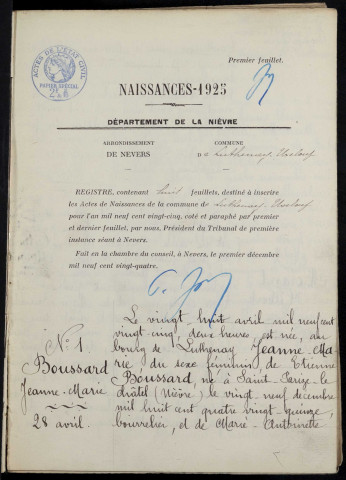 Premier feuillet.
ACTES DE L'ÉTAT CIVIL
PAPIER SPÉCIAL
NAISSANCES-1925
DÉPARTEMENT DE LA NIÈVRE
ARRONDISSEMENT
DE NEVERS
COMMUNE
D e Luthenay-Uxeloup
REGISTRE, contenant huit feuillets, destiné à inscrire
les Actes de Naissances de la commune de Luthenay-Uxeloup
pour l'an mil neuf cent vingt-cinq, coté et paraphé par premier
et dernier feuillet, par nous, Président du Tribunal de première
instance séant à Nevers.
Fait en la chambre du conseil, à Nevers, le premier décembre
mil neuf cent vingt-quatre.
N° 1
Boussard
Jeanne-Marie
28 avril.
Le vingt huit avril mil neuf cent
vingt cinq, deux heures est née, au
bourg de Luthenay Jeanne-Ma
rie, du sexe féminin, de Etienne
Boussard, né à Saint-Parize-le
Châtel (Nièvre) le vingt neuf décembre
mil huit cent quatre vingt quinze,
bourrelier, et de Marie-Antoinette